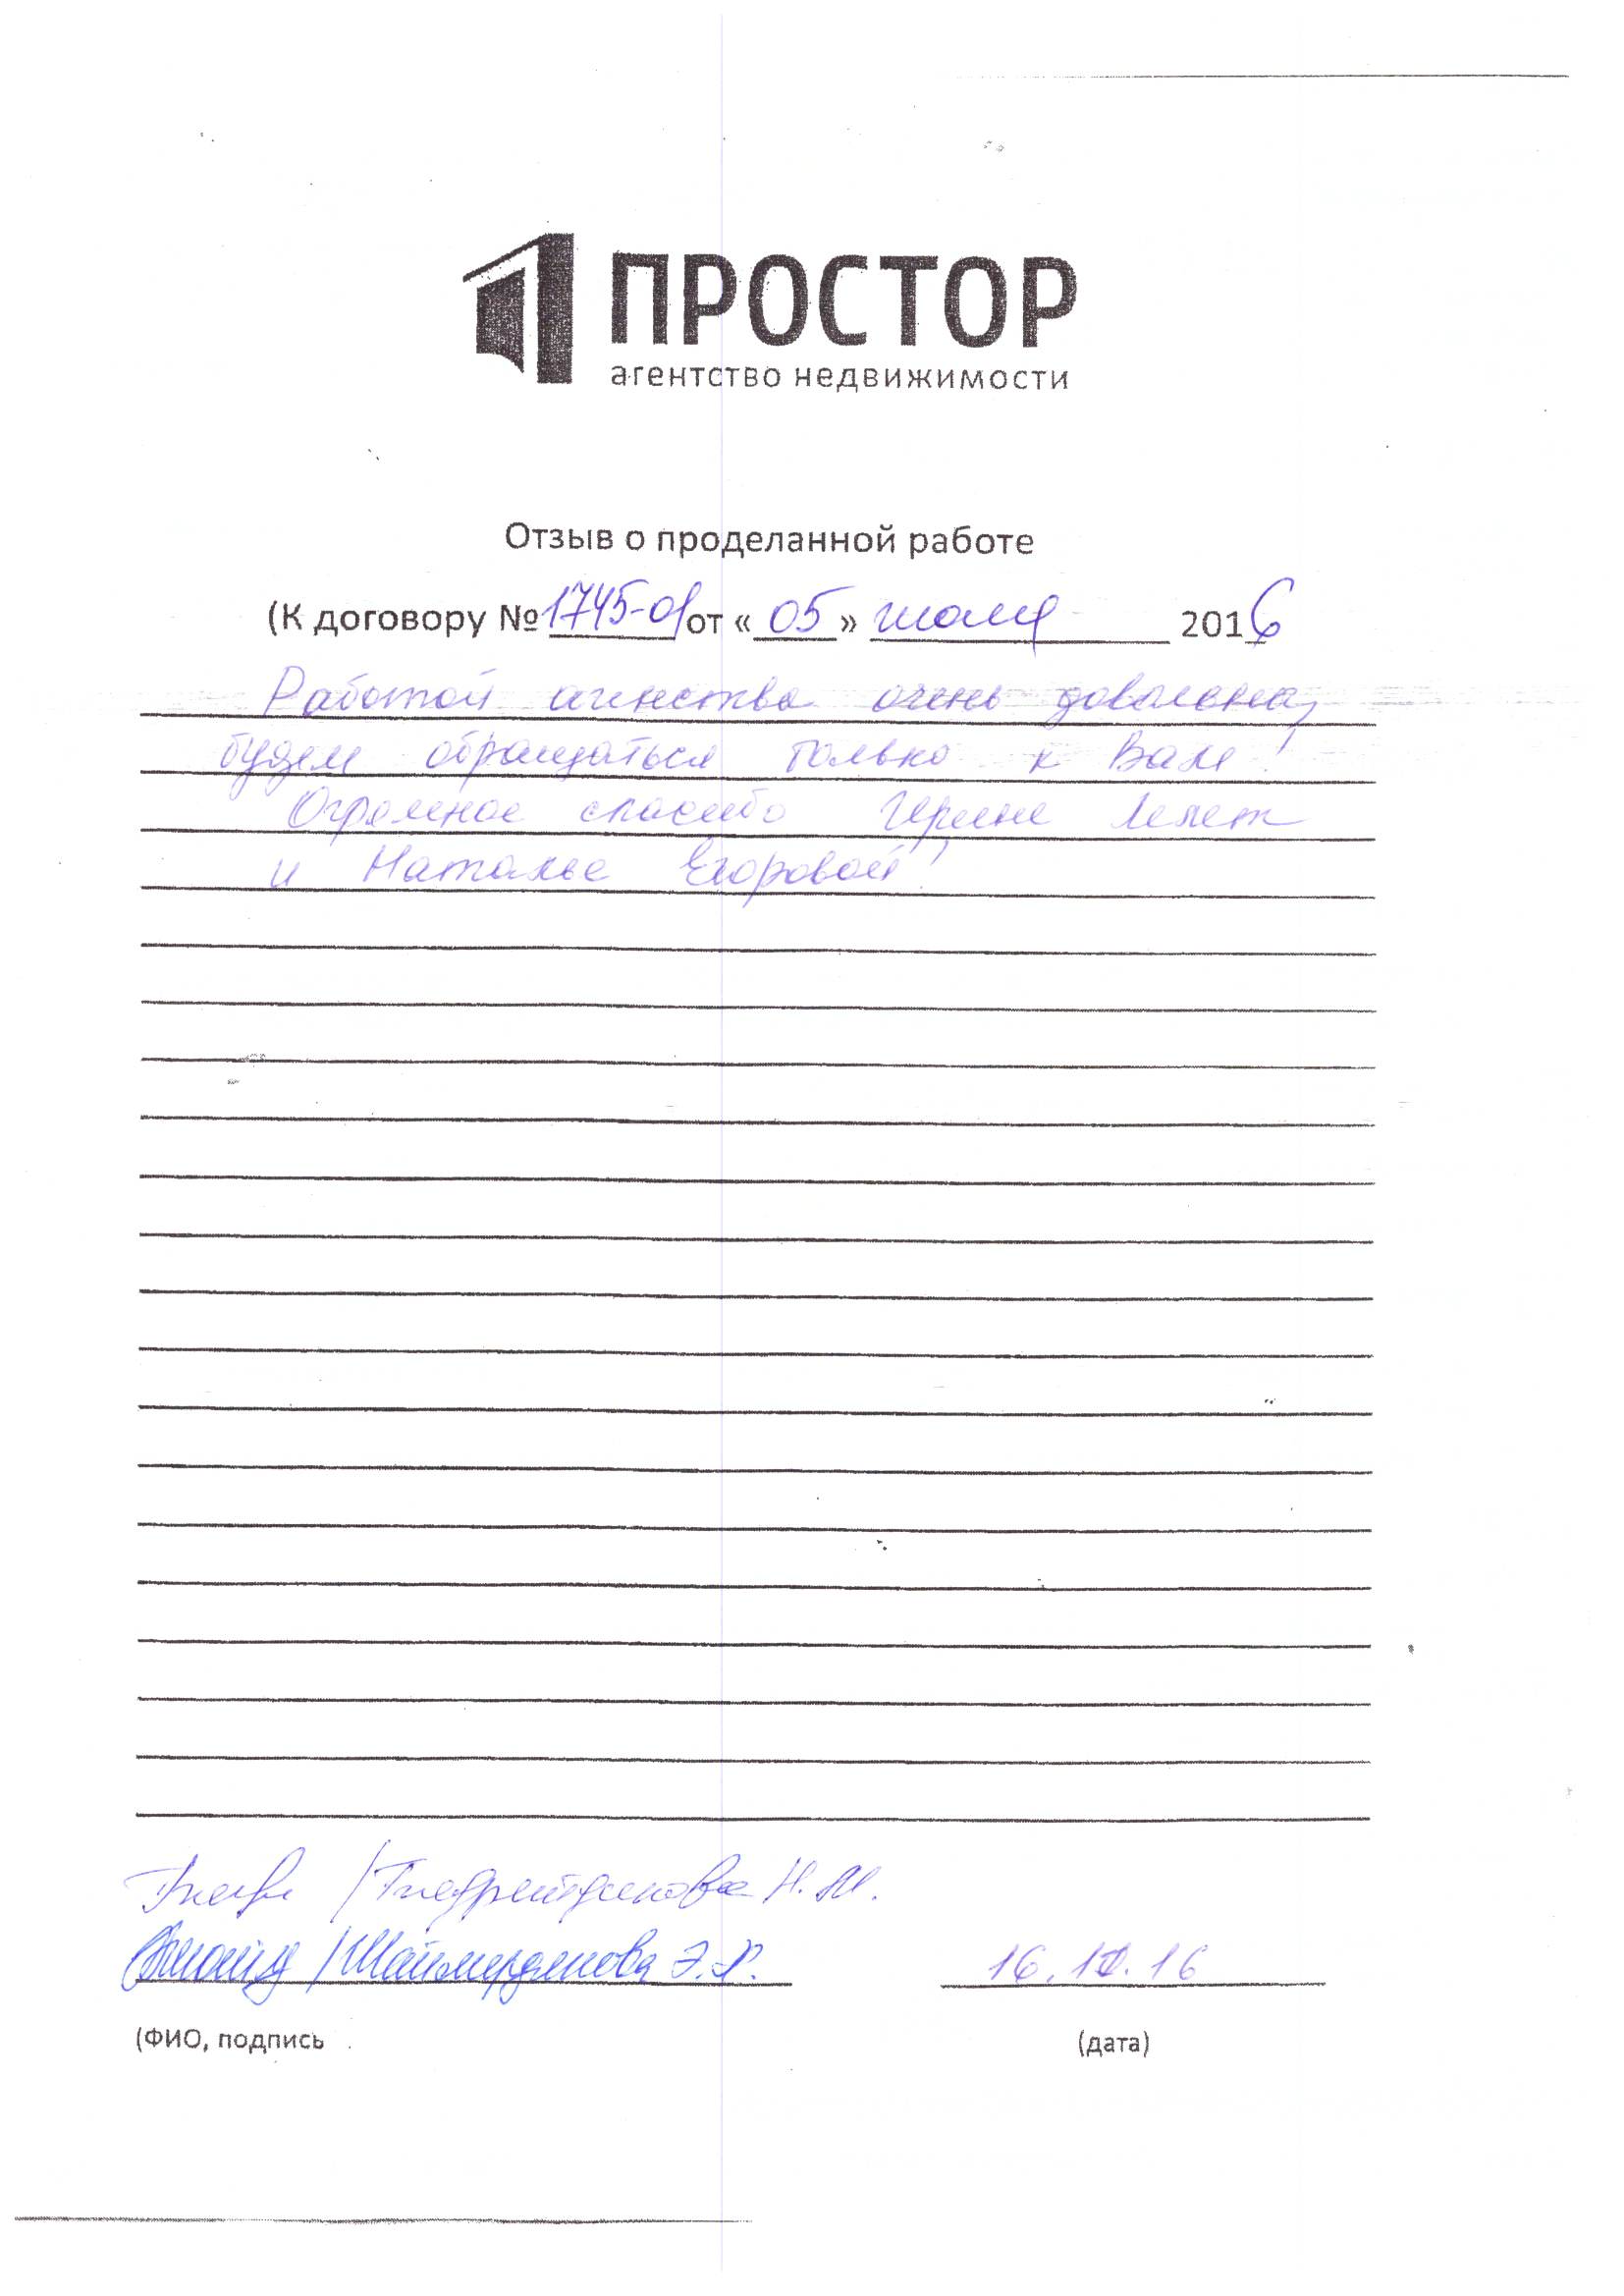 ПРОСТОР
агентство недвижимости
Отзыв о проделанной работе
(К договору № 1745-01 от « 05 » июля 2016
Работой агенства очень довольна,
будем обращаться только к Вам!
Огромное спасибо Ирине
и Наталье Егоровой!
Н. М.
/Шаймерданова Э. Х.
16.10.16
(ФИО, подпись
(дата)